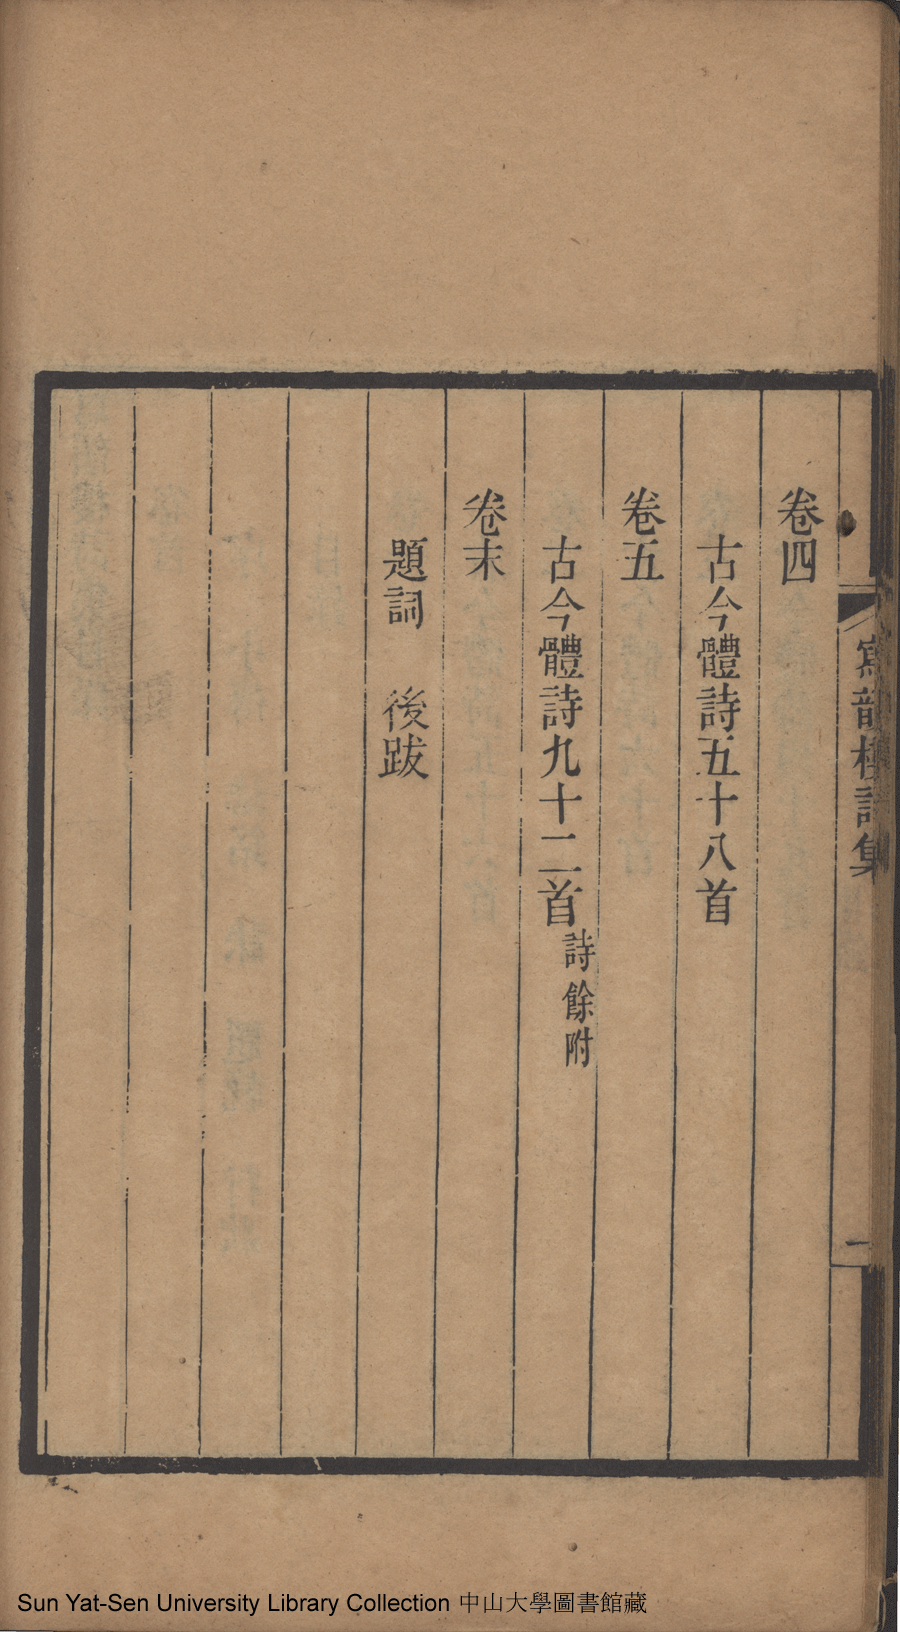 卷四
古今體詩五十八首
卷五
古今體詩九十二首詩餘附
卷末
題詞 後跋
寫韻樓詩集
一
Sun Yat-Sen University Library Collection 中山大學圖書館藏